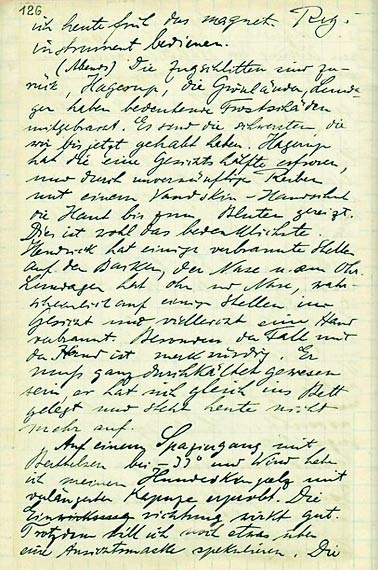 126
ich heute früh das magnet. Reg.-
instrument bedienen.
(Abends) Die Zugschlitten sind zu-
rück, Hagerup, die Grönländer, Lunda-
ger haben bedeutende Frostschäden
mitgebracht. Es sind die schwersten, die
wir bis jetzt gehabt haben. Hagerup
hat die eine Gesichtshälfte erfroren,
und durch unvernünftige Reiben
mit einem Vandskin-Handschuh
die Haut bis zum Bluten gereizt.
Dies ist wohl das bedenklichste.
Hendrick hat einige verbrannte Stellen
auf den Backen, der Nase u. am Ohr.
Lundager hat Ohr und Nase, wahr-
scheinlich auf einige Stellen im
Gesicht und vielleicht eine Hand
verbrannt. Besonders der Fall mit
der Hand ist merkwürdig. Er
muß ganz durchkältet gewesen
sein er hat sich gleich ins Bett
gelegt und steht heute nicht
mehr auf.
Auf einem Spaziergang mit
Bertelsen bei -33° und Wind habe
ich meinen Hundeskinpelz mit
verlängerter Kapuze erprobt. Die
richtung wirkt gut.
Trotzdem will ich noch etwas über
eine Ansichtsmaske spekulieren. Die